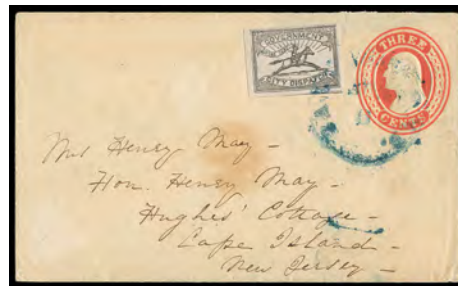 GOVERNMENT
CITY DISPATCH
THREE
CENTS
Mrs Henry May -
Hon. Henry May -
Hughes' Cottage -
Cape Island -
New Jersey -